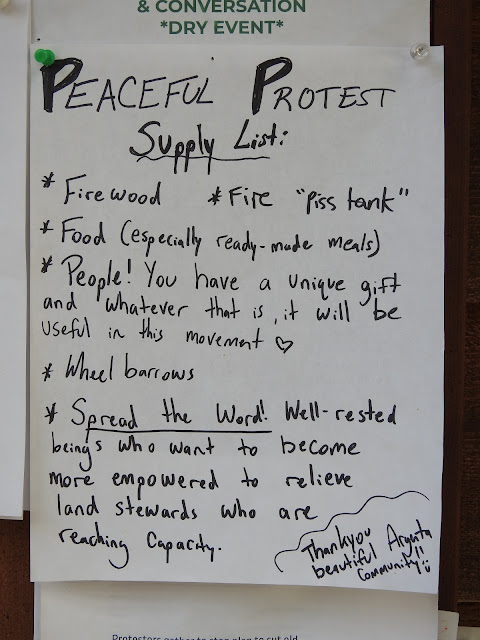 & CONVERSATION
*DRY EVENT*
PEACEFUL PROTEST
Supply List:
* Firewood * Fire "piss tank"
* Food (especially ready-made meals)
* People! You have a unique gift
and whatever that is, it will be
useful in this movement ♡
* Wheel barrows
* Spread the Word! Well-rested
beings who want to become
more empowered to relieve
land stewards who are
reaching capacity.
Thankyou
beautiful Argenta
Community!! :)
Protectors gather to stop plan to cut old